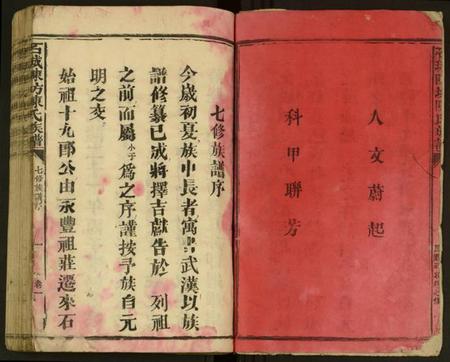 人文蔚起
科甲聯芳
七修族譜序
今歲初夏族中長者寓書武漢以族
譜修纂已成將擇吉獻告於 列祖
之前而屬小子爲之序謹按予族自元
明之交
始祖十九郎公由永豐祖莊遷來石
七修族譜序
一